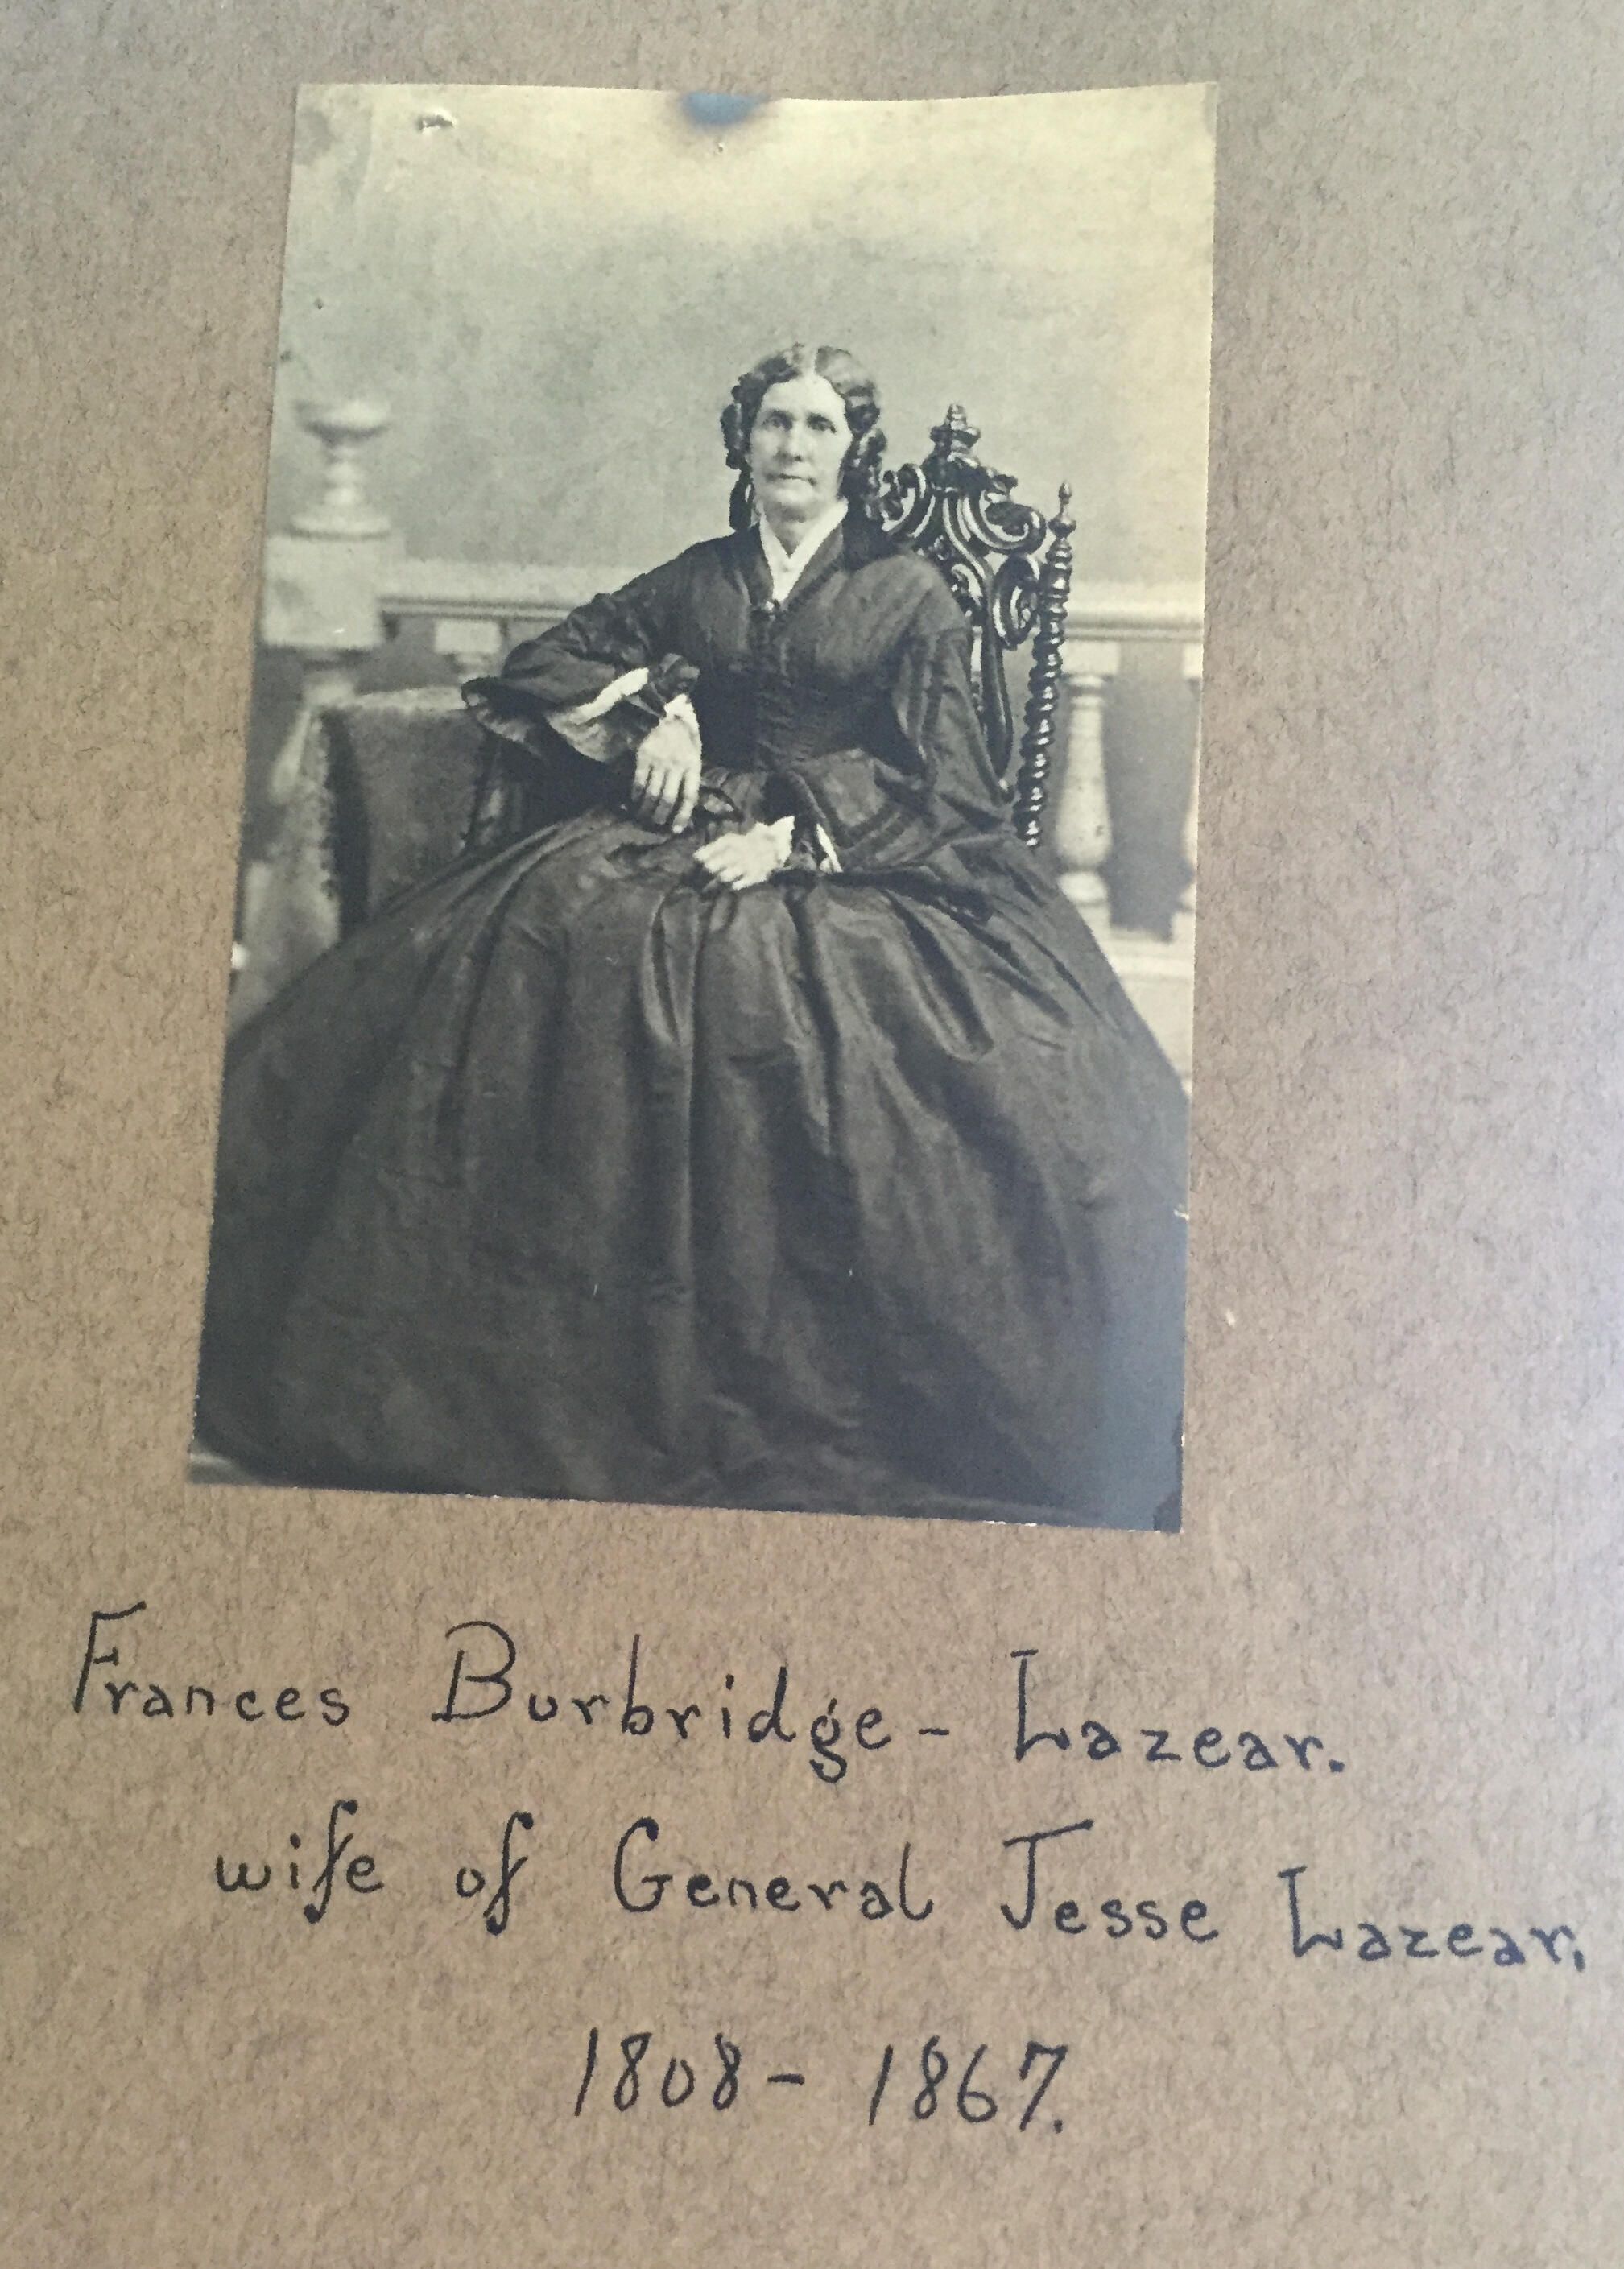 Frances Burbridge - Lazear.
wife of General Jesse Lazear,
1808 - 1867.